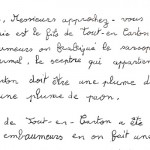 . Messieurs approchez-vous
is est le fils de Tout-en Carton
aumeurs on fabriqué le sarcop
mal, le sceptre qui appartien
rton doit être une plume d
une plume de paon.
de Tout-en-Carton a été
embaumeurs en on fait une